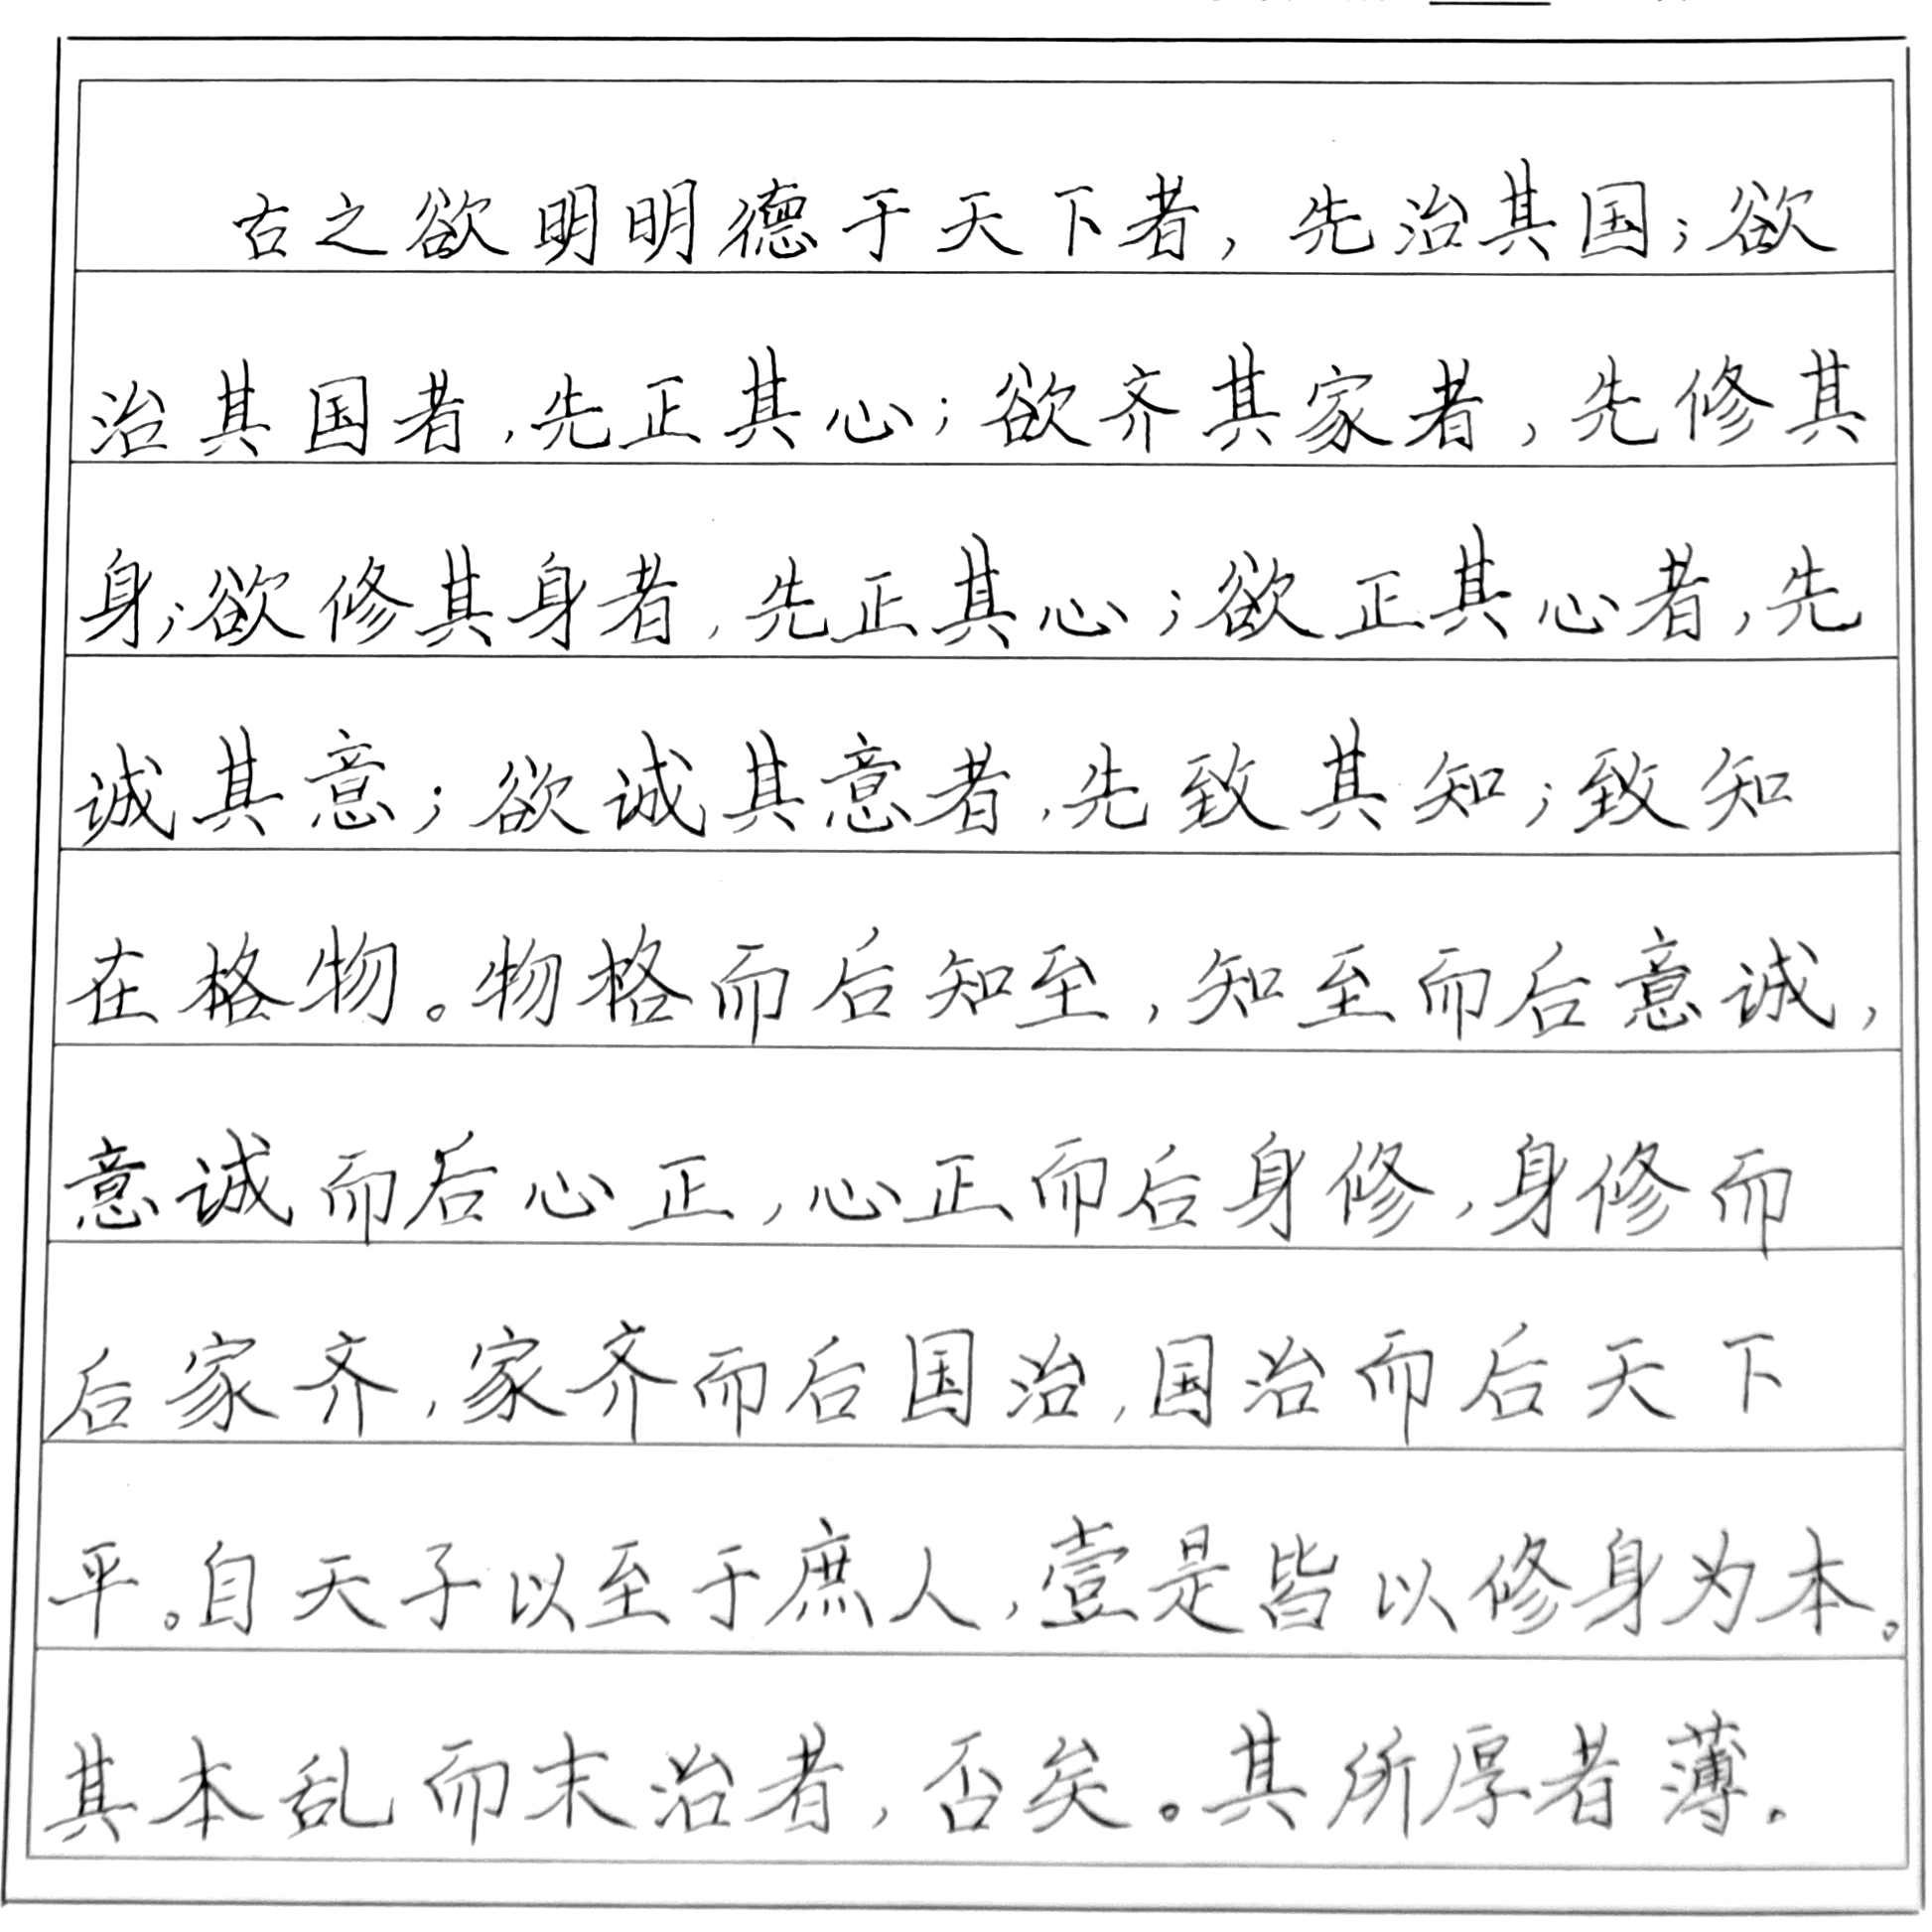 古之欲明明德于天下者，先治其国；欲
治其国者，先正其心；欲齐其家者，先修其
身；欲修其身者，先正其心；欲正其心者，先
诚其意；欲诚其意者，先致其知；致知
在格物。物格而后知至，知至而后意诚，
意诚而后心正，心正而后身修，身修而
后家齐，家齐而后国治，国治而后天下
平。自天子以至于庶人，壹是皆以修身为本。
其本乱而末治者，否矣。其所厚者薄，